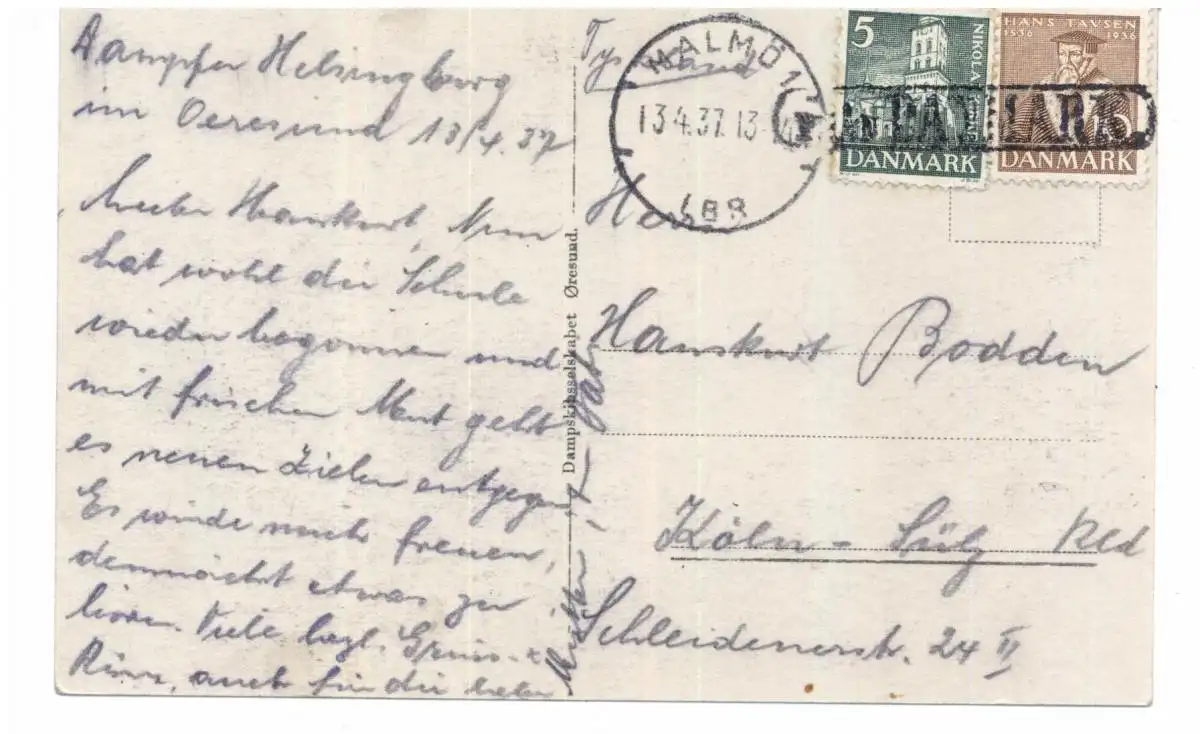 Dampfer Helsingborg
im Oeresund 13/4.37
Lieber Hanskurt, Nun
hat wohl die Schule
wieder begonnen und
mit frischem Mut geht
es neuen Zielen entgegen
Es würde mich freuen,
demnächst etwas zu
hören. Viele herzl. Grüsse
auch für die lieben
Mutter
Dampskibsselskabet Øresund.
Tyskland
MALMÖ 1
13.4.37.13
LBR
5
NIKOLAJ KIRKE
DANMARK
HANS TAVSEN
1536 1936
15
DANMARK
FRÅN DANMARK
Herrn
Hanskurt Bodden
Köln - Sülz Rld
Schleidenerstr. 24 II